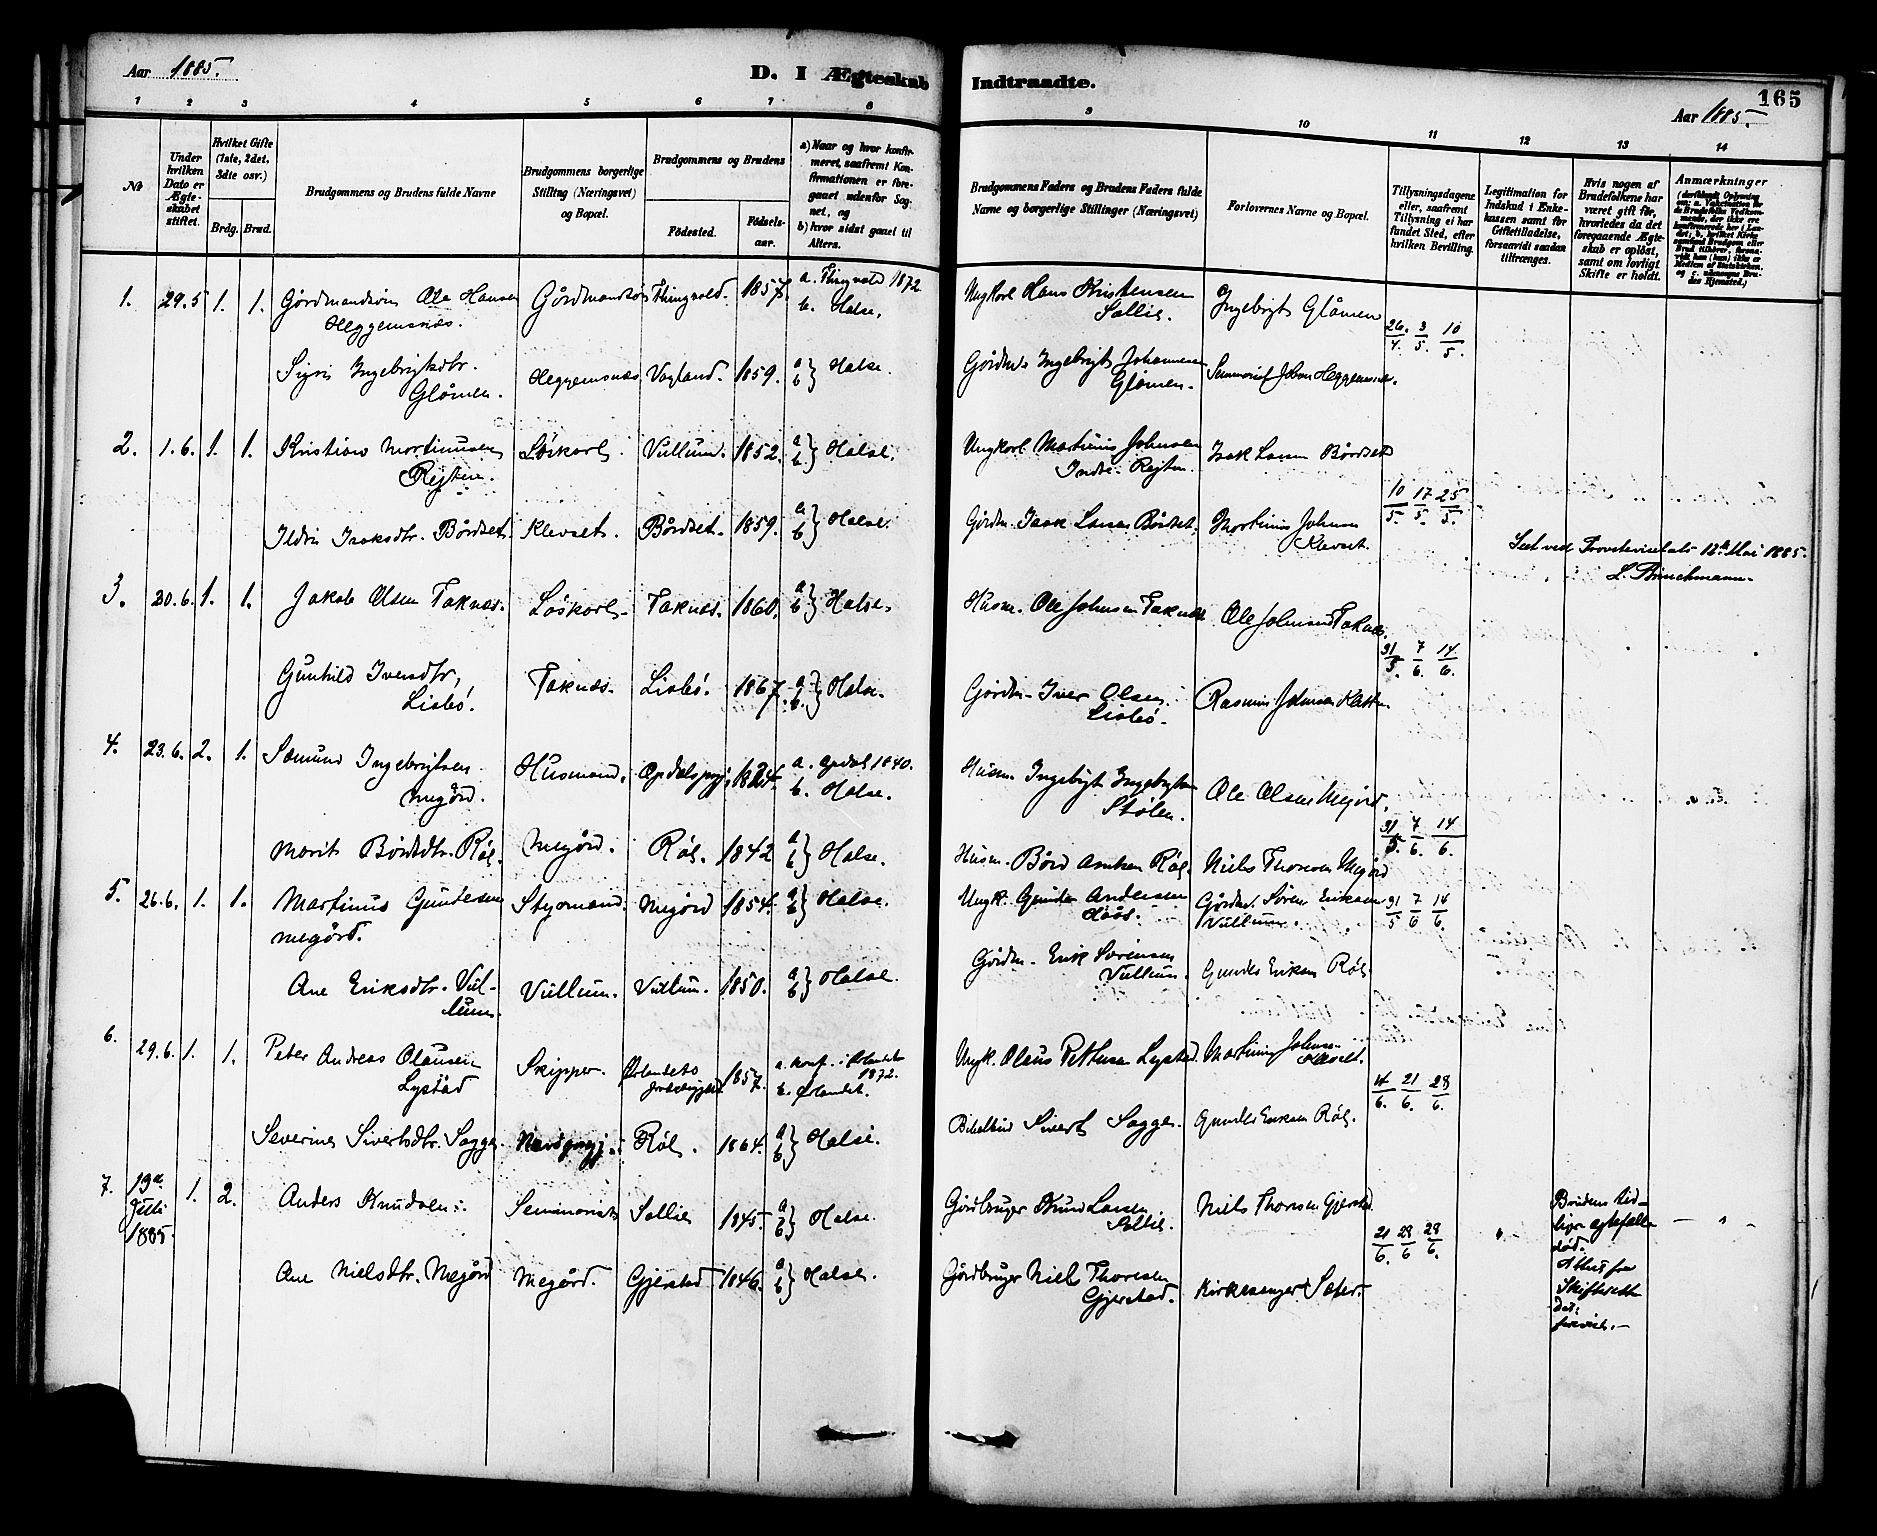 Aar 1885.
D. I Ægteskab
Indtraadte.
165
Aar 1885.
1 2 3 4 5 6 7 8
9 10 11 12 13 14
№
Under hvilken Dato er Ægteskabet stiftet.
Hvilket Gifte (1ste, 2det, 3die osv.)
Brdg. Brud.
Brudgommens og Brudens fulde Navne
Brudgommens borgerlige Stilling (Næringsvei) og Bopæl.
Brudgommens og Brudens
Fødested.
Fødselsaar.
a) Naar og hvor konfirmeret, saafremt Konfirmationen er foregaaet udenfor Sognet, og
b) hvor sidst gaaet til Alters.
Brudgommens Faders og Brudens Faders fulde Navne og borgerlige Stillinger (Næringsvei)
Forlovernes Navne og Bopæl.
Tillysningsdagene eller, saafremt Tillysning ei har fundet Sted, efter hvilken Bevilling.
Legitimation for Indskud i Enkekassen samt for Giftetilladelse, forsaavidt saadan tiltrænges.
Hvis nogen af Brudefolkene har været gift før, hvorledes da det foregaaende Ægteskab er opløst, samt om lovligt Skifte er holdt.
Anmærkninger
1. 29.5 1. 1. Gårdmandsøn Ole Hansen Heggemsnæs. Gårdmandsøn Thingvold. 1857. a. Thingvold 1872 b. Halse. Ungkarl Hans Kristensen Sollie. Ingebrigt Glåmen 26/4. 3/5. 10/5.
Sigri Ingebrigtsdtr. Glåmen. Heggemsnæs Vagland. 1859. a b } Halse. Gårdm. Ingebrigt Johannesen Glåmen. Seminarist Johan Heggemsnæs.
2. 1.6. 1. 1. Kristian Mortinusen Rejten. Løskarl. Vullum. 1852. a b } Halse. Ungkarl Martinus Johnsen Indre Rejten. Isak Larsen Bårdset 10/5. 17/5. 25/5.
Ildri Isaksdtr. Bårdset. Klevset. Bårdset. 1859. a b } Halse. Gårdm. Isak Larsen Bårdset. Mortinus Johnsen Klevset.
Seet ved Provstevisitats 12te Mai 1885.
L. Brinchmann.
3. 20.6. 1. 1. Jakob Olsen Taknæs. Løskarl. Taknæs. 1860. a b } Halse. Husm. Ole Johnsen Taknæs Ole Johnsen Taknæs. 31/5. 7/6. 14/6.
Gunhild Iversdtr, Lisbø. Taknæs. Lisbø. 1867. a. b. } Halse. Gårdm. Iver Olsen Lisbø. Rasmus Johnsen
4. 23.6. 2. 1. Sæmund Ingebrigtsen Megård. Husmand. Opdalsprgj. 1824. a. Opdal 1840. b. Halse. Husm. Ingebrigt Ingebrigtsen Stølen. Ole Olsen Megård. 31/5. 7/6. 14/6.
Marit Bårdsdtr. Røl. Megård. Røl. 1842 a b } Halse. Husm. Bård Røl Niels Thoresen Megård
5. 26.6. 1. 1. Martinus Gundersen Megård. Styrmand. Megård 1854. a b } Halse. Ungk. Gunder Andersen Gårdm. Søren Eriksen Vullum. 31/5 7/6 14/6.
Ane Eriksdtr. Vullum. Vullum. Vullum. 1850. a b } Halse. Gårdm. Erik Sørensen Vullum. Gunder Eriksen Røl.
6. 29.6. 1. 1. Peter Andreas Olausen Lystad Skipper. Ørlandets 1857. a. konf. i Ørlandet 1872. b. Ørlandet. Ungk. Olaus Lystad. Martinus Johnsen Klevset. 14/6. 21/6. 28/6.
Severine Sivertsdtr. Sagge. Røl. 1864. a b } Halse. Sivert Sagge. Gunder Eriksen Røl.
7. 19de Juli 1885. 1. 2. Anders Knudsen. Seminarist Sollie 1845. a b } Halse. Gårdbruger Knud Larsen Sollie. Niels Thoresen Gjerstad 21/6. 28/6 28/6. Brudens tidligere egtefælle død. Attest fra Skifteretten forevist.
Ane Nielsdtr. Megård Megård. Gjerstad 1846. a b } Halse. Gårdbruger Niels Thoresen Gjerstad. Kirkesanger Sæter.